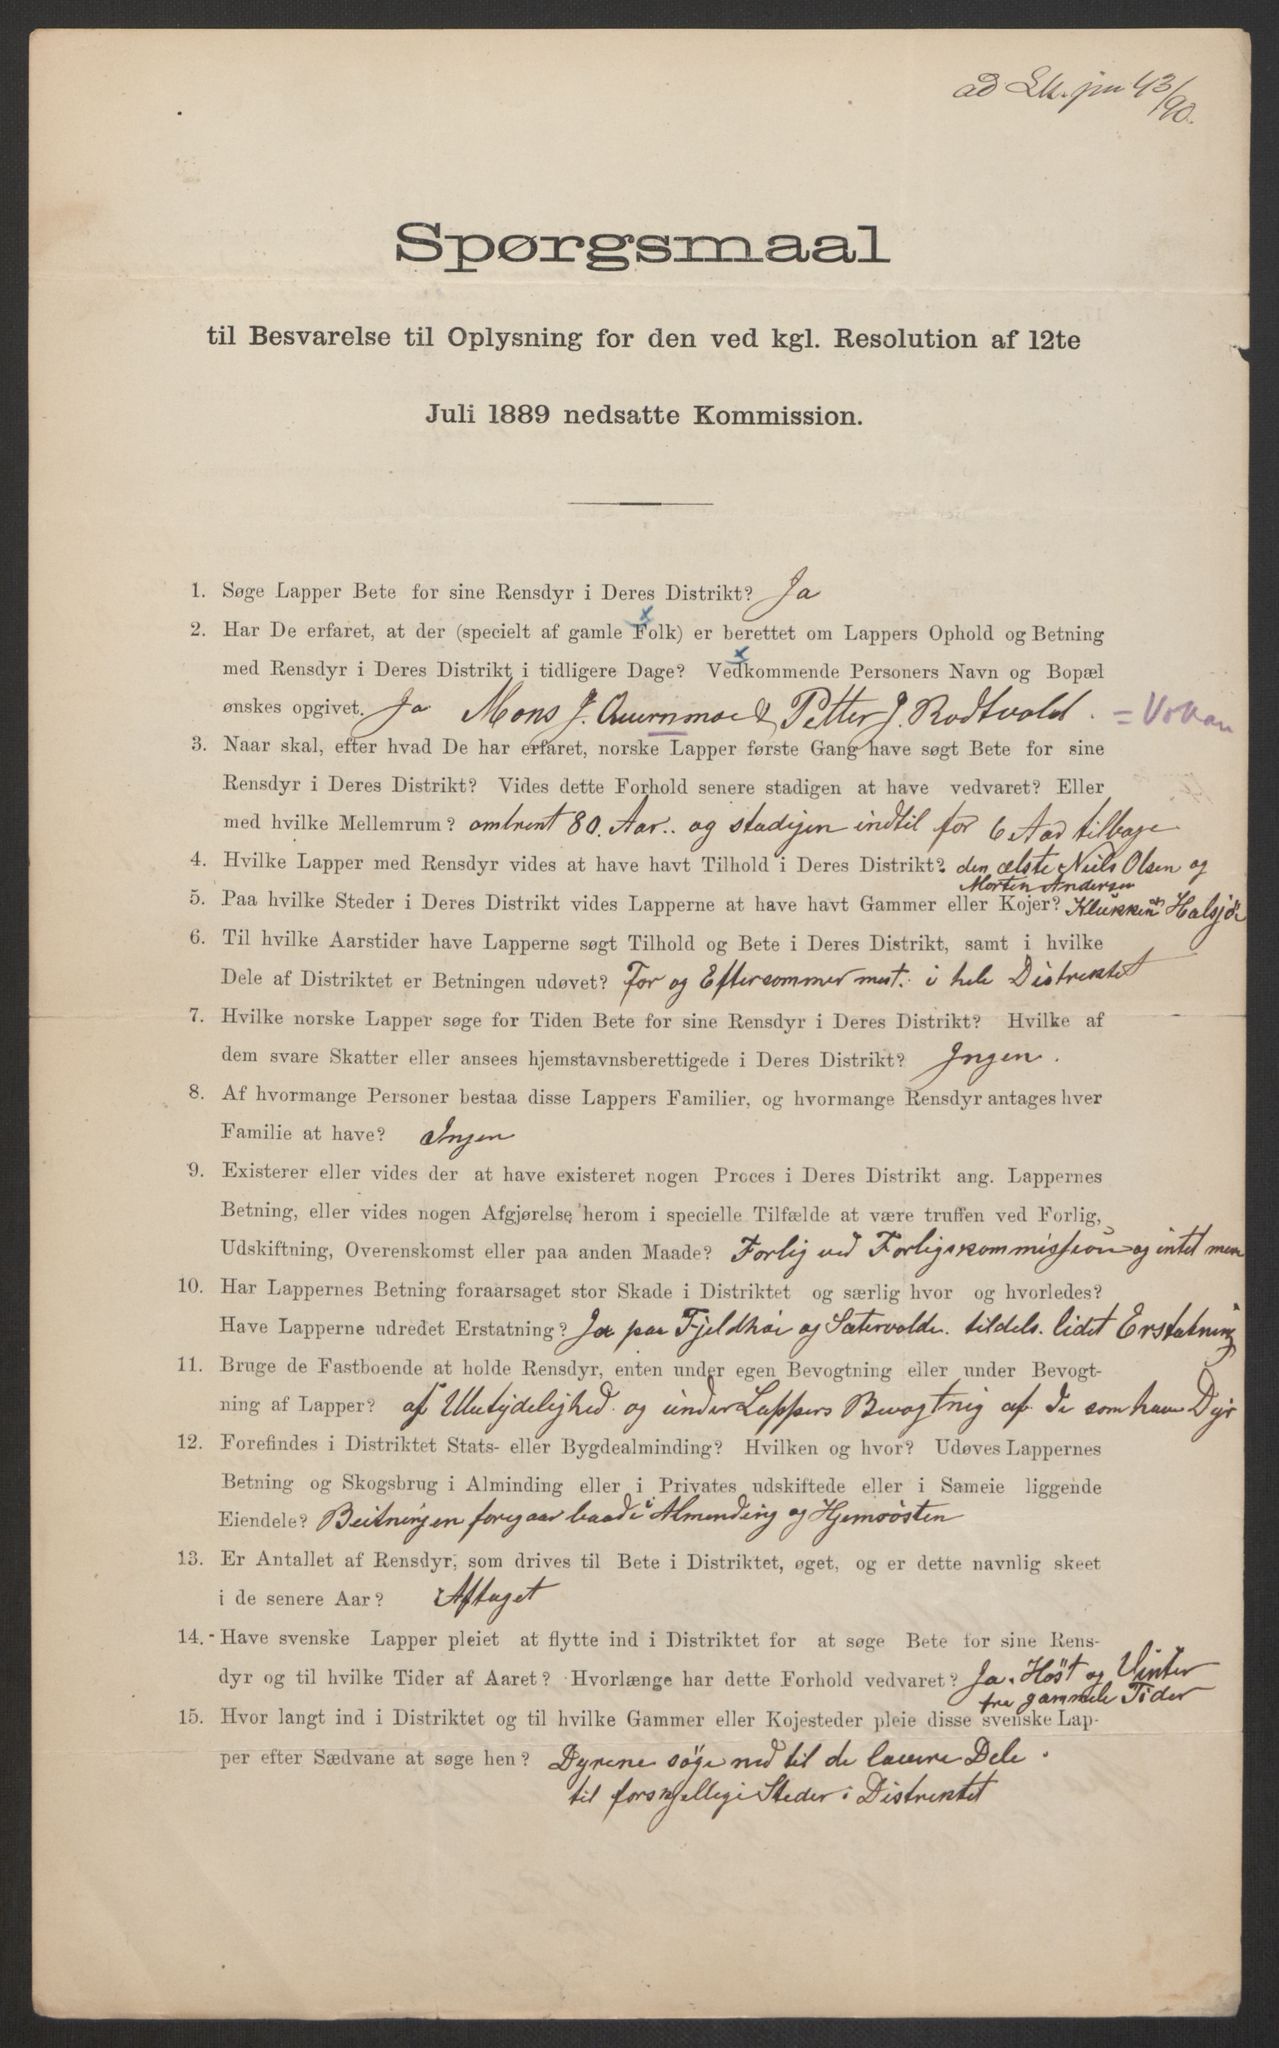 ad Lk. jnr 43/90.
Spørgsmaal
til Besvarelse til Oplysning for den ved kgl. Resolution af 12te
Juli 1889 nedsatte Kommission.
1. Søge Lapper Bete for sine Rensdyr i Deres Distrikt? Ja
2. Har De erfaret, at der (specielt af gamle Folk) er berettet om Lappers Ophold og Betning
med Rensdyr i Deres Distrikt i tidligere Dage? Vedkommende Personers Navn og Bopæl
ønskes opgivet. Ja Mons J. Quernmoe & Petter J. Rodtvold. =
3. Naar skal, efter hvad De har erfaret, norske Lapper første Gang have søgt Bete for sine
Rensdyr i Deres Distrikt? Vides dette Forhold senere stadigen at have vedvaret? Eller
med hvilke Mellemrum? omtrent 80. Aar.. og stadijen indtil for 6 Aar tilbage
4. Hvilke Lapper med Rensdyr vides at have havt Tilhold i Deres Distrikt? den ælste Niels Olsen og
Morten Andersen
5. Paa hvilke Steder i Deres Distrikt vides Lapperne at have havt Gammer eller Kojer? Klukken & Halsjø
6. Til hvilke Aarstider have Lapperne søgt Tilhold og Bete i Deres Distrikt, samt i hvilke
Dele af Distriktet er Betningen udøvet? For og Eftersommer mest. i hele Distrektet
7. Hvilke norske Lapper søge for Tiden Bete for sine Rensdyr i Deres Distrikt? Hvilke af
dem svare Skatter eller ansees hjemstavnsberettigede i Deres Distrikt? Ingen.
8. Af hvormange Personer bestaa disse Lappers Familier, og hvormange Rensdyr antages hver
Familie at have? Ingen
9. Existerer eller vides der at have existeret nogen Proces i Deres Distrikt ang. Lappernes
Betning, eller vides nogen Afgjørelse herom i specielle Tilfælde at være truffen ved Forlig,
Udskiftning, Overenskomst eller paa anden Maade? Forlig ved Forligskommission og intet mere
10. Har Lappernes Betning foraarsaget stor Skade i Distriktet og særlig hvor og hvorledes?
Have Lapperne udredet Erstatning? Ja paa Fjeldhøi og Sætervolde. tildels. lidet Erstatning
11. Bruge de Fastboende at holde Rensdyr, enten under egen Bevogtning eller under Bevogt-
ning af Lapper? af Ubetydelighed og under Lappers Bevogtnig af de som have Dyr
12. Forefindes i Distriktet Stats- eller Bygdealminding? Hvilken og hvor? Udøves Lappernes
Betning og Skogsbrug i Alminding eller i Privates udskiftede eller i Sameie liggende
Eiendele? Beitningen foregaar baade i Almending og Hjemøosten
13. Er Antallet af Rensdyr, som drives til Bete i Distriktet, øget, og er dette navnlig skeet
i de senere Aar? Aftaget
14. - Have svenske Lapper pleiet at flytte ind i Distriktet for at søge Bete for sine Rens-
dyr og til hvilke Tider af Aaret? Hvorlænge har dette Forhold vedvaret? Ja. Høst og Vinter
fra gammele Tider
15. Hvor langt ind i Distriktet og til hvilke Gammer eller Kojesteder pleie disse svenske Lap-
per efter Sædvane at søge hen? Dyrene søge ned til de lavere Dele.
til forskjellige Steder i Distrektet